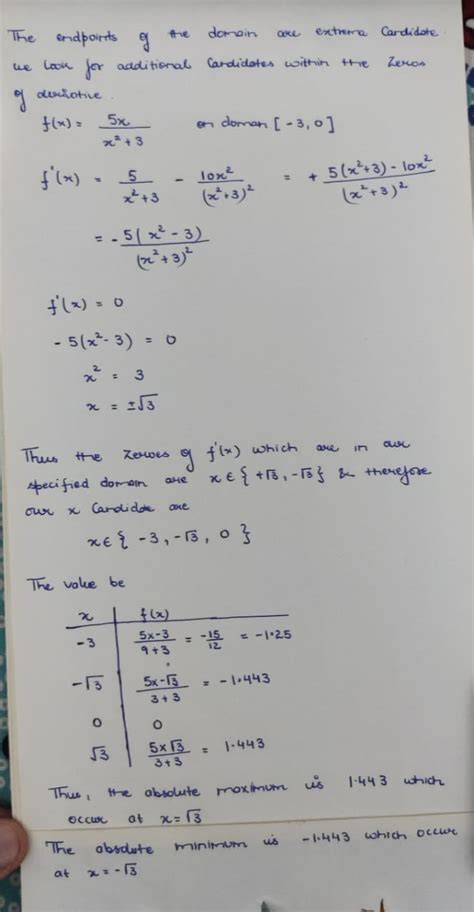 The endpoints of the domain are extrema Candidate.
we look for additional Candidates within the Zeros
of derivative.
f(x) = 5x / x² + 3 on doman [-3, 0]
f'(x) = 5 / x² + 3 - 10x² / (x² + 3)² = + 5(x² + 3) - 10x² / (x² + 3)²
= - 5(x² - 3) / (x² + 3)²
f'(x) = 0
- 5(x² - 3) = 0
x² = 3
x = ±√3
Thus the Zeroes of f'(x) which are in our
specified domain are x ∈ { +√3, -√3 } & therefore
our x Candidate are
x ∈ { -3, -√3, 0 }
The value be
x f(x)
-3 5x-3 / 9+3 = -15 / 12 = -1.25
-√3 5x-√3 / 3+3 = -1.443
0 0
√3 5x√3 / 3+3 = 1.443
Thus, the absolute maximum is 1.443 which
occur at x = √3
The absolute minimum is -1.443 which occur
at x = -√3